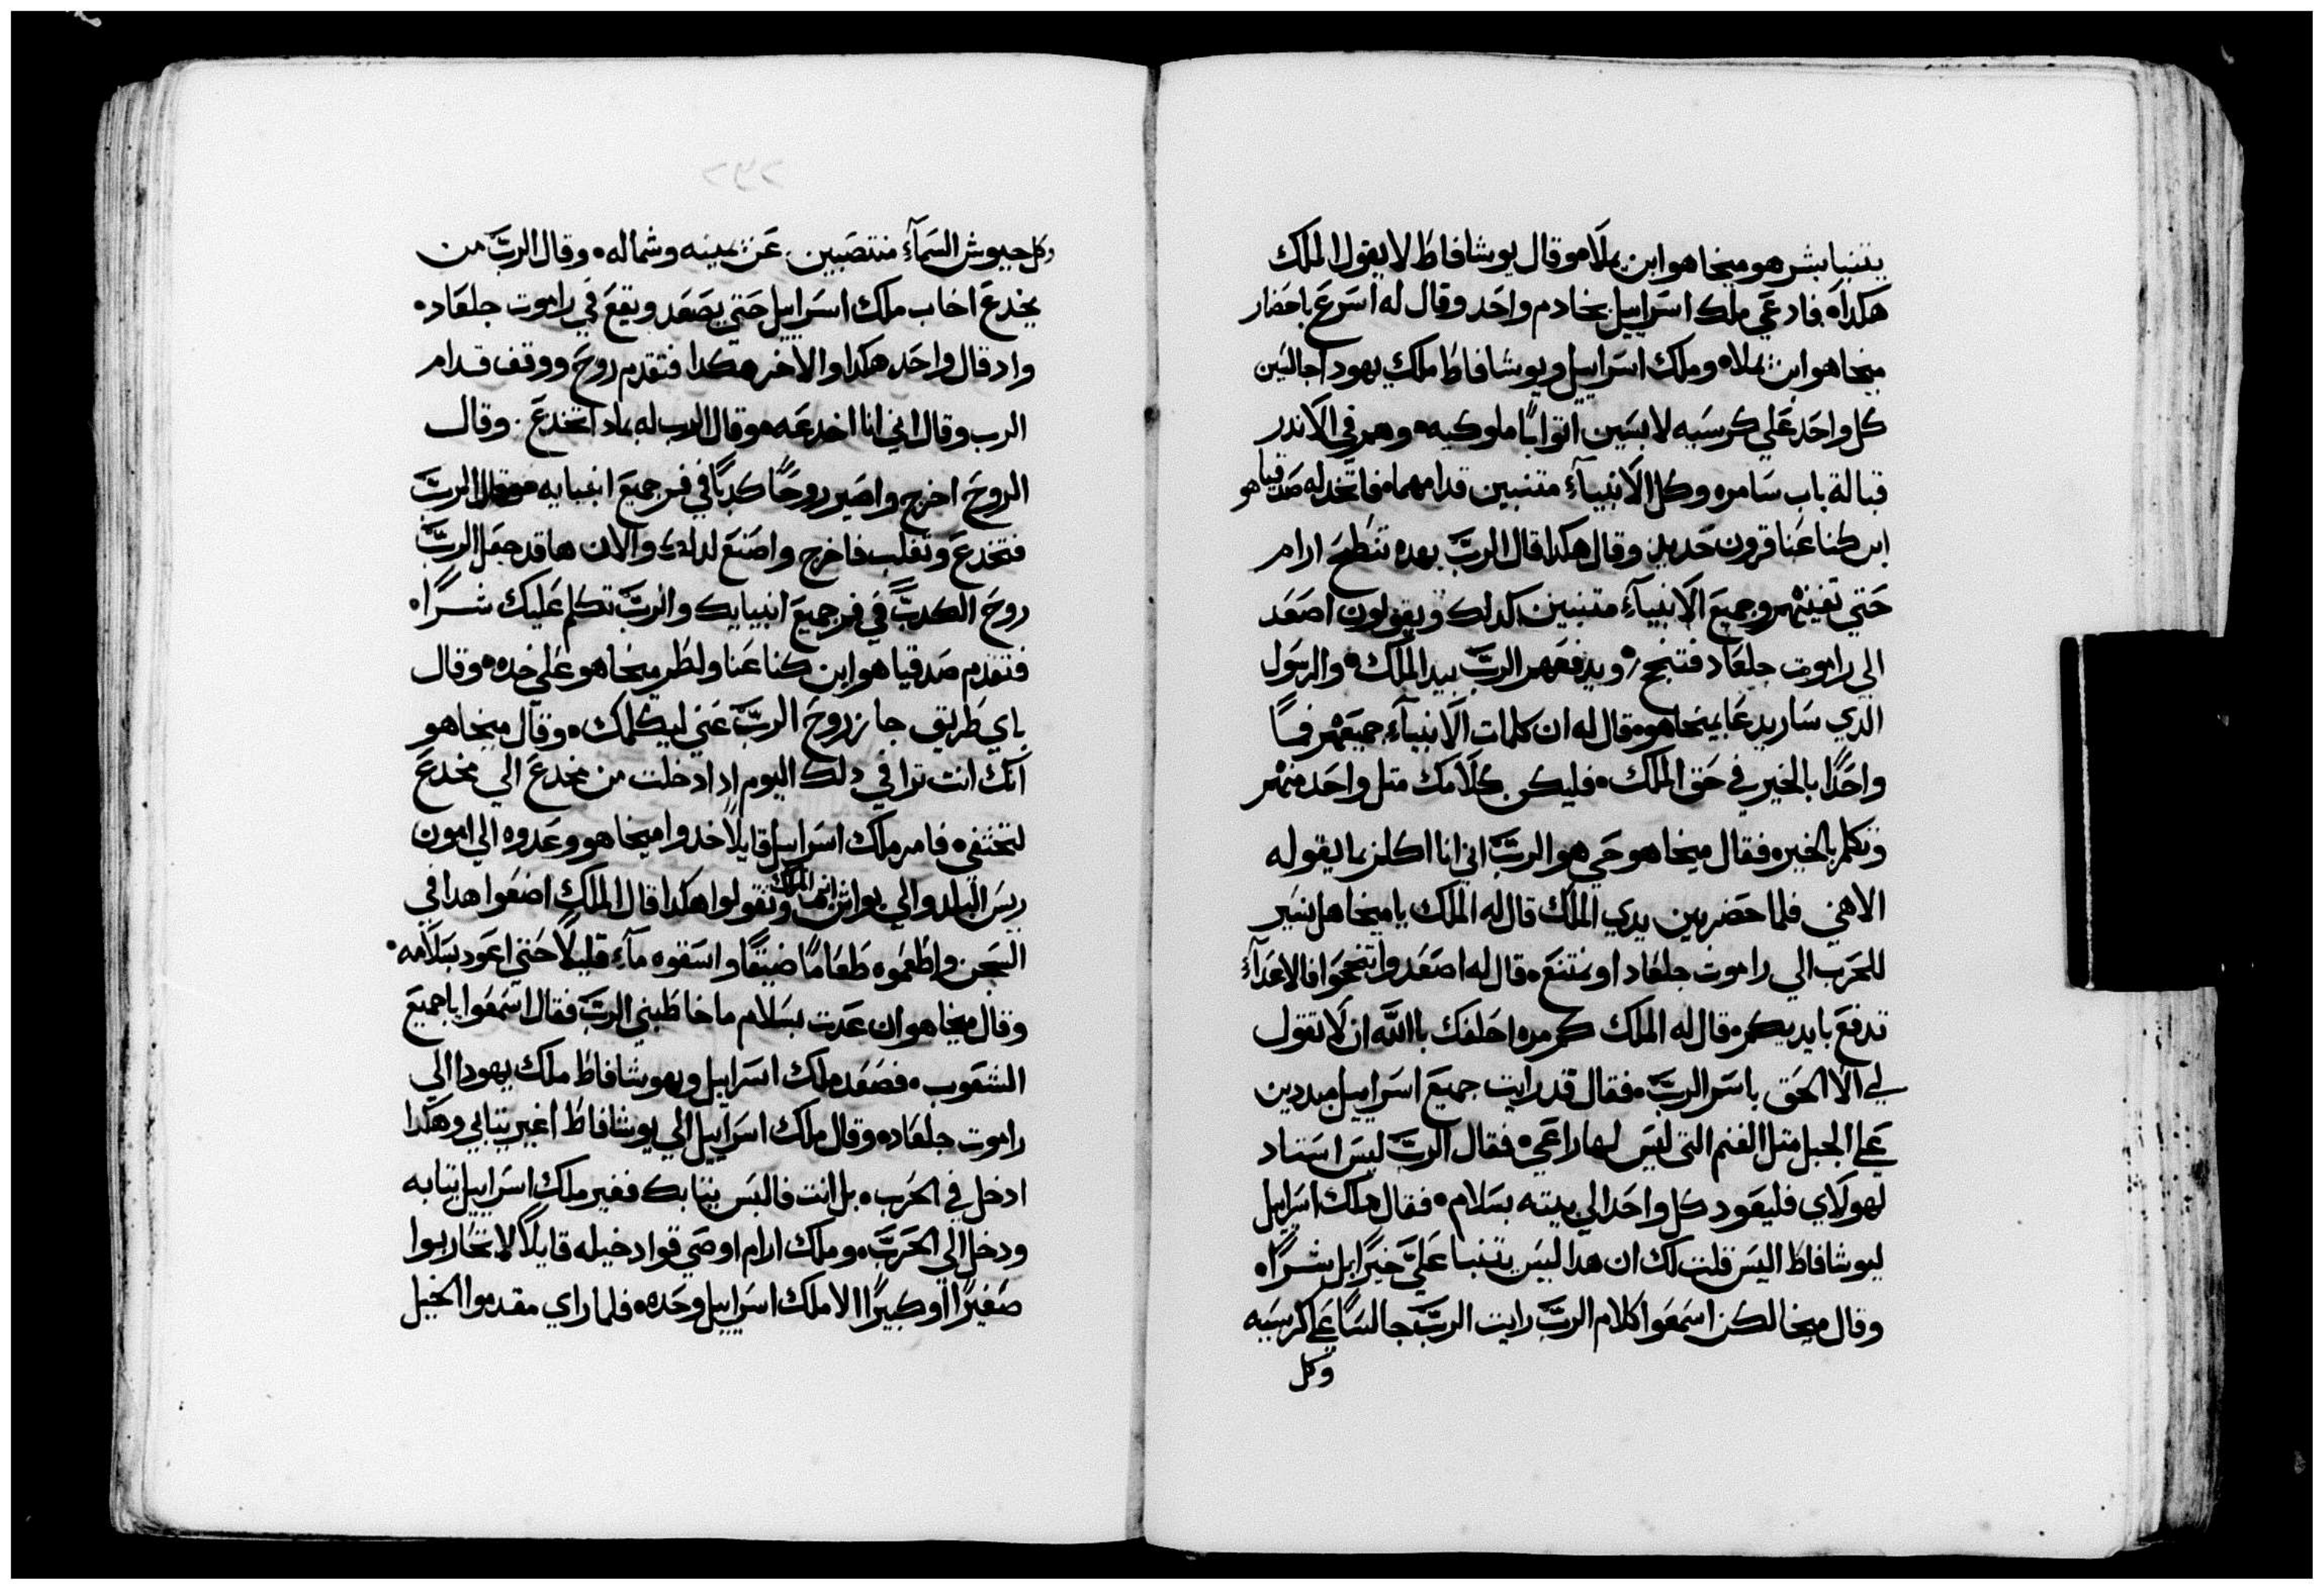 يتنبا بشر هو ميخاهو ابن يملا • وقال يوشافاط لا يقول الملك
هكدا • فادعي ملك اسراييل بخادم واحد وقال له اسرع باحضار
ميخاهو ابن يملا • وملك اسراييل ويوشافاط ملك يهودا جالسين
كل واحد علي كرسيه لابسين اتوابا ملوكيه • وهم في الاندر
قبالة باب سامره وكل الانبياء متنبين قدامهما • فاتخد له صدقياهو
ابن كناعنا قرون حديد وقال هكدا قال الرب بهده تنطح ارام
حتي تفنيهم وجميع الانبياء متنبين كدلك ويقولون اصعد
الي راموت جلعاد فتنجح • ويدفعهم الرب بيد الملك • والرسول
الدي سار يدعا ميخاهو • قال له ان كلمات الانبياء جميعهم فما
واحدا بالخير في حق الملك • فليكن كلامك متل واحد منهم
وتكلم بالخير • فقال ميخاهو حي هو الرب اني انا اكلم بما يقوله
الاهي فلما حضر بين يدي الملك قال له الملك يا ميخا هل نسير
للحرب الي راموت جلعاد او نمتنع • قال له اصعدوا تنجحوا فالاعداء
تدفع بايديكم • قال له الملك كم مره احلفك باالله ان لا تقول
لي الا الحق باسم الرب • فقال قد رايت جميع اسراييل مبددين
علي الجبل متل الغنم التي ليس لها راعي • فقال الرب ليس استاد
لهولاي فليعود كل واحد الي بيته بسلام • فقال ملك اسراييل
ليوشافاط اليس قلت لك ان هدا ليس يتنبا علي خيرا بل شرا •
وقال ميخا لكن اسمعوا كلام الرب رايت الرب جالسا علي كرسيه
وكل
وكل جيوش السماء منتصبين عن يمينه وشماله • وقال الرب من
يخدع اخاب ملك اسراييل حتي يصعد ويقع في راموت جلعاد •
واد قال واحد هكدا والاخر هكدا فتقدم روح ووقف قدام
الرب وقال اني انا اخدعه • وقال الرب له بمادا تخدع • وقال
الروح اخرج واصير روحا كدبا في فم جميع انبيايه • وقال الرب
فتخدع وتغلب فاخرج واصنع كدلك والان ها قد جعل الرب
روح الكدب في فم جميع انبيايك والرب تكلم عليك شرا •
فتقدم صدقياهو ابن كناعنا ولطم ميخاهو علي خده • وقال
باي طريق جاز روح الرب عني ليكلمك • وقال ميخاهو
انك انت ترا في دلك اليوم اد ادخلت من مخدع الي مخدع
لتختفي • فامر ملك اسراييل قايلا خدوا ميخاهو وعدوه الي امون
ريس البلد والي يواش ابن الملك وتقولوا هكدا قال الملك اضعوا هدا في
السجن واطعموه طعاما ضيقا واسقوه ماء قليلا حتي اعود بسلامه •
وقال ميخاهو ان عدت بسلام ما خاطبني الرب فقال اسمعوا يا جميع
الشعوب • فصعد ملك اسراييل ويهوشافاط ملك يهودا الي
راموت جلعاد • وقال ملك اسراييل الي يوشافاط اغير تيابي وهكدا
ادخل في الحرب • بل انت فالبس تيابك فغير ملك اسراييل تيابه
ودخل الي الحرب • وملك ارام اوصي قواد خيله قايلا لا تحاربوا
صغيرا او كبيرا الا ملك اسراييل وحده • فلما راي مقدموا الخيل